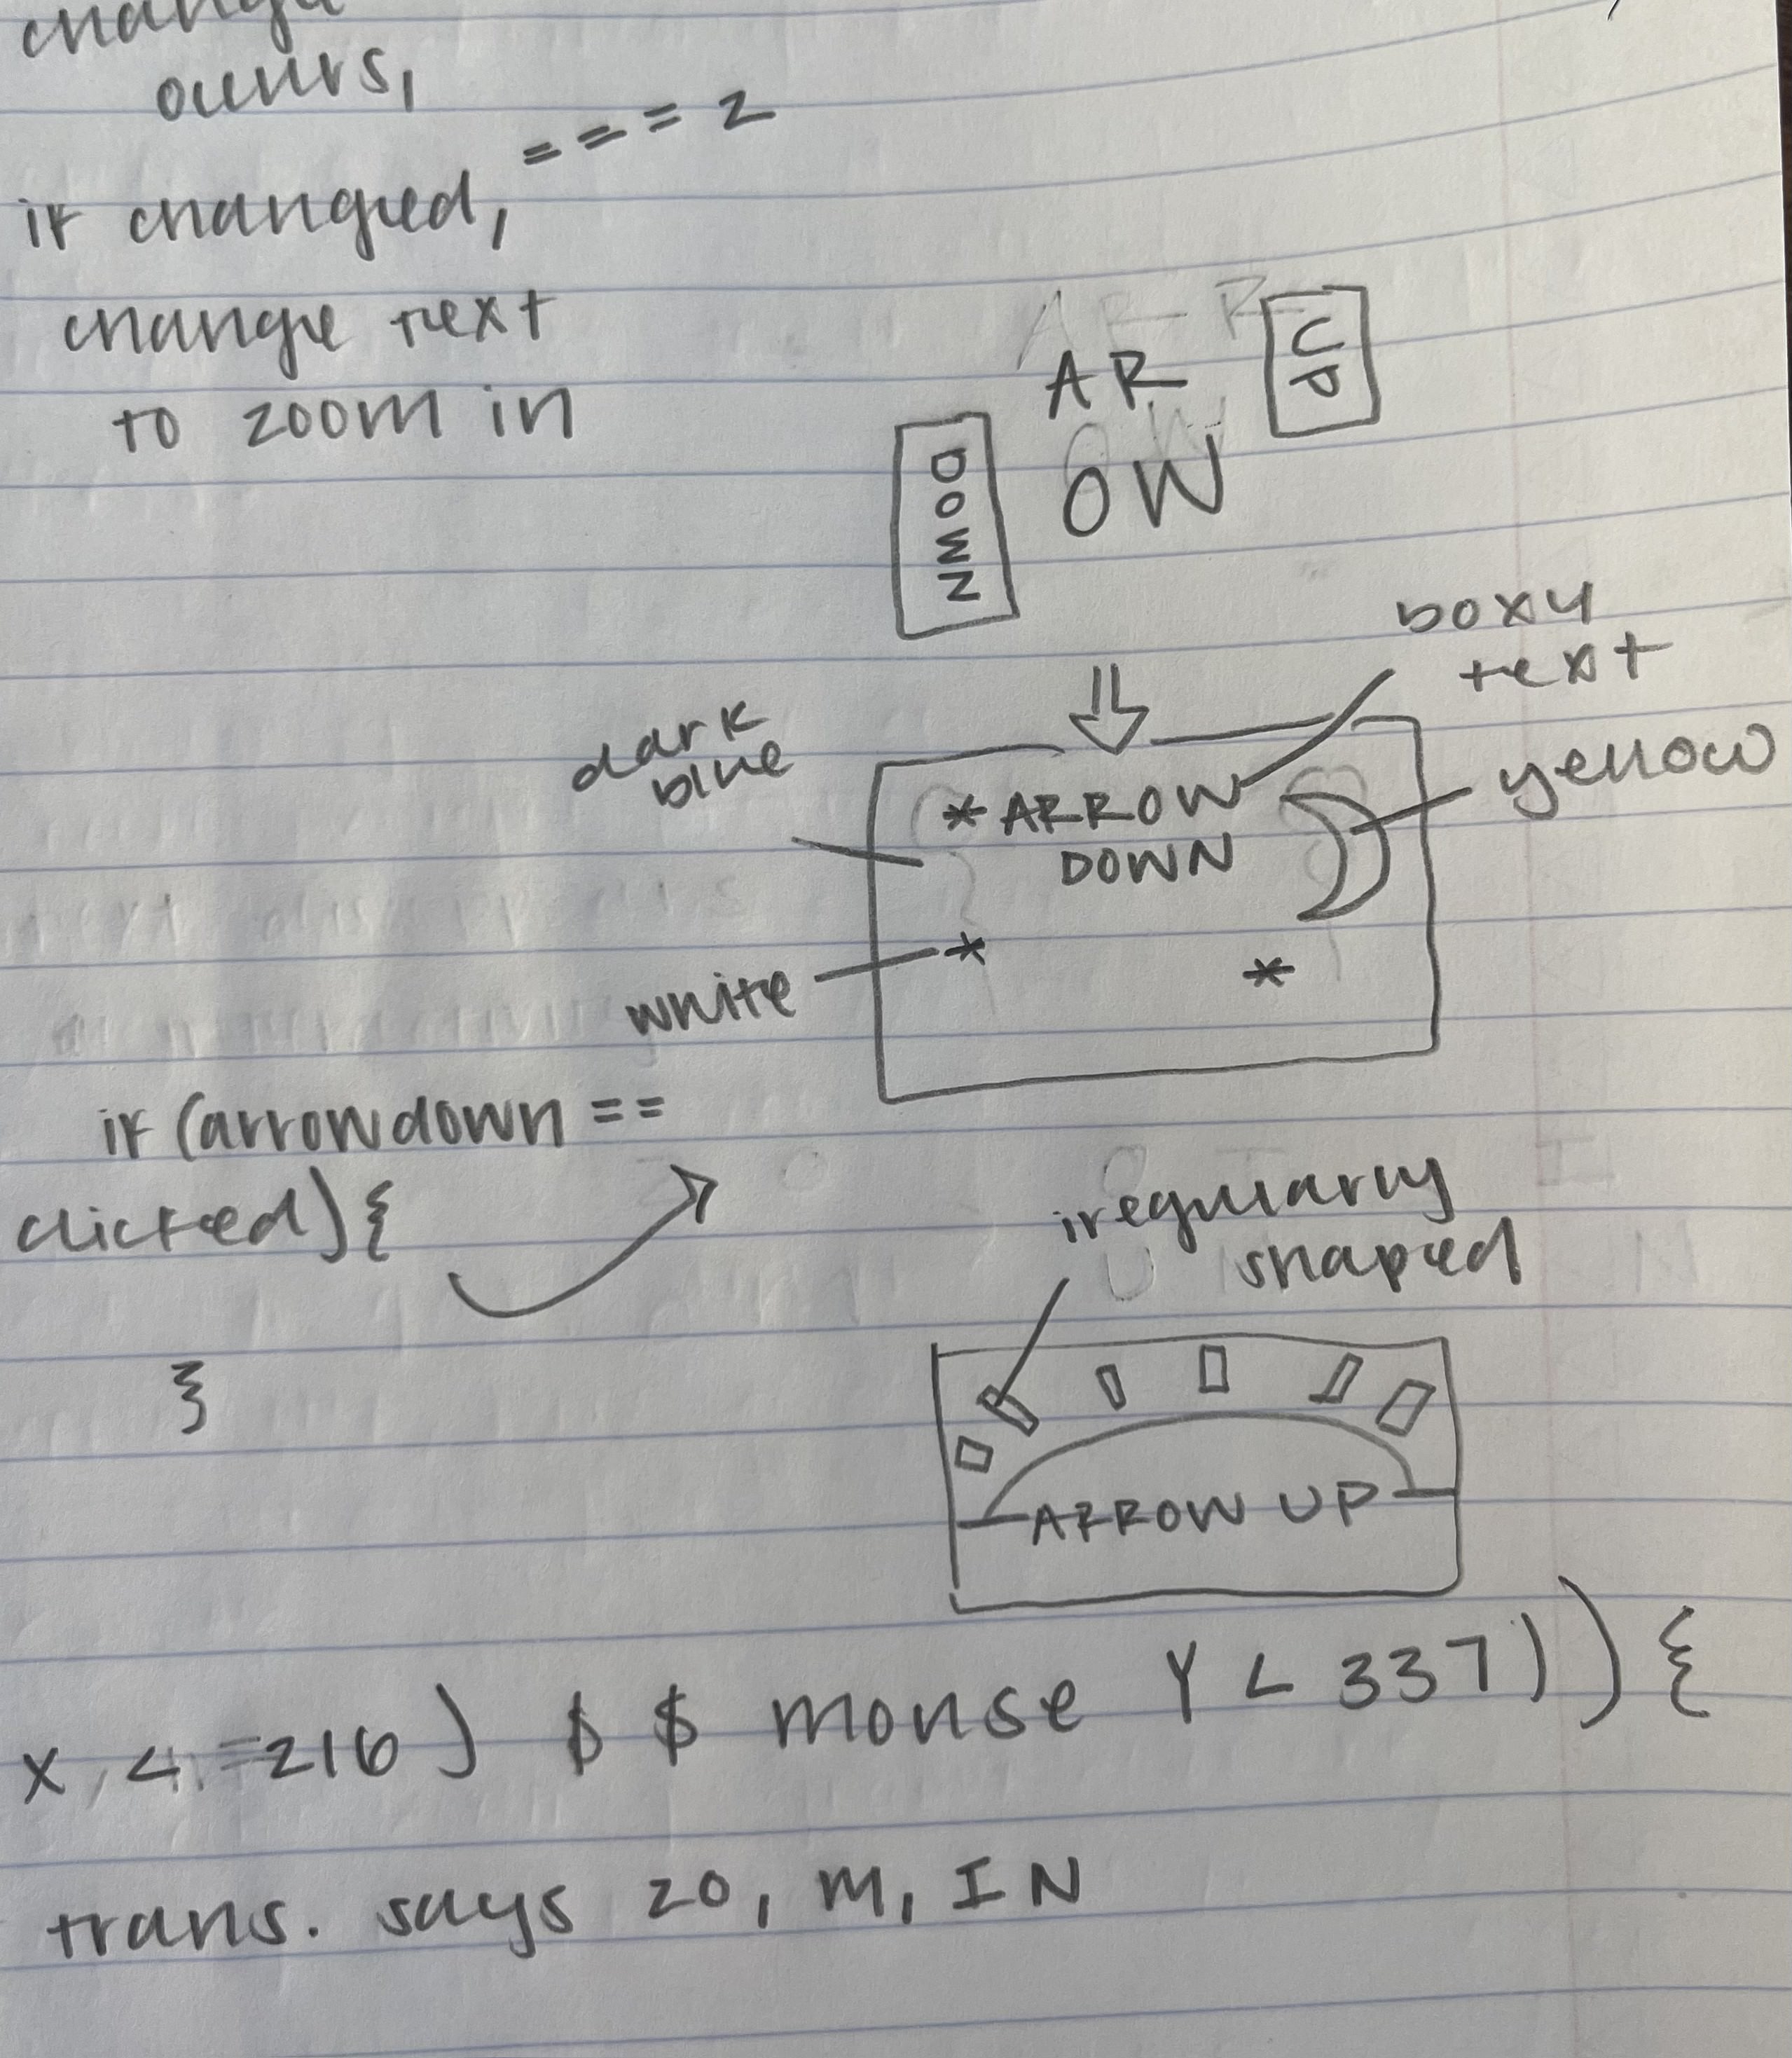 change
occurs,
=== z
if changed,
change text
to zoom in
ARR
UP
AR
OW
OW
DOWN
boxy
text
dark
blue
yellow
* ARROW
DOWN
*
*
white
if (arrowdown ==
clicked) {
}
iregularly
shaped
ARROW UP
x <=216) $ $ mouse Y < 337)) {
trans. says zo, m, IN